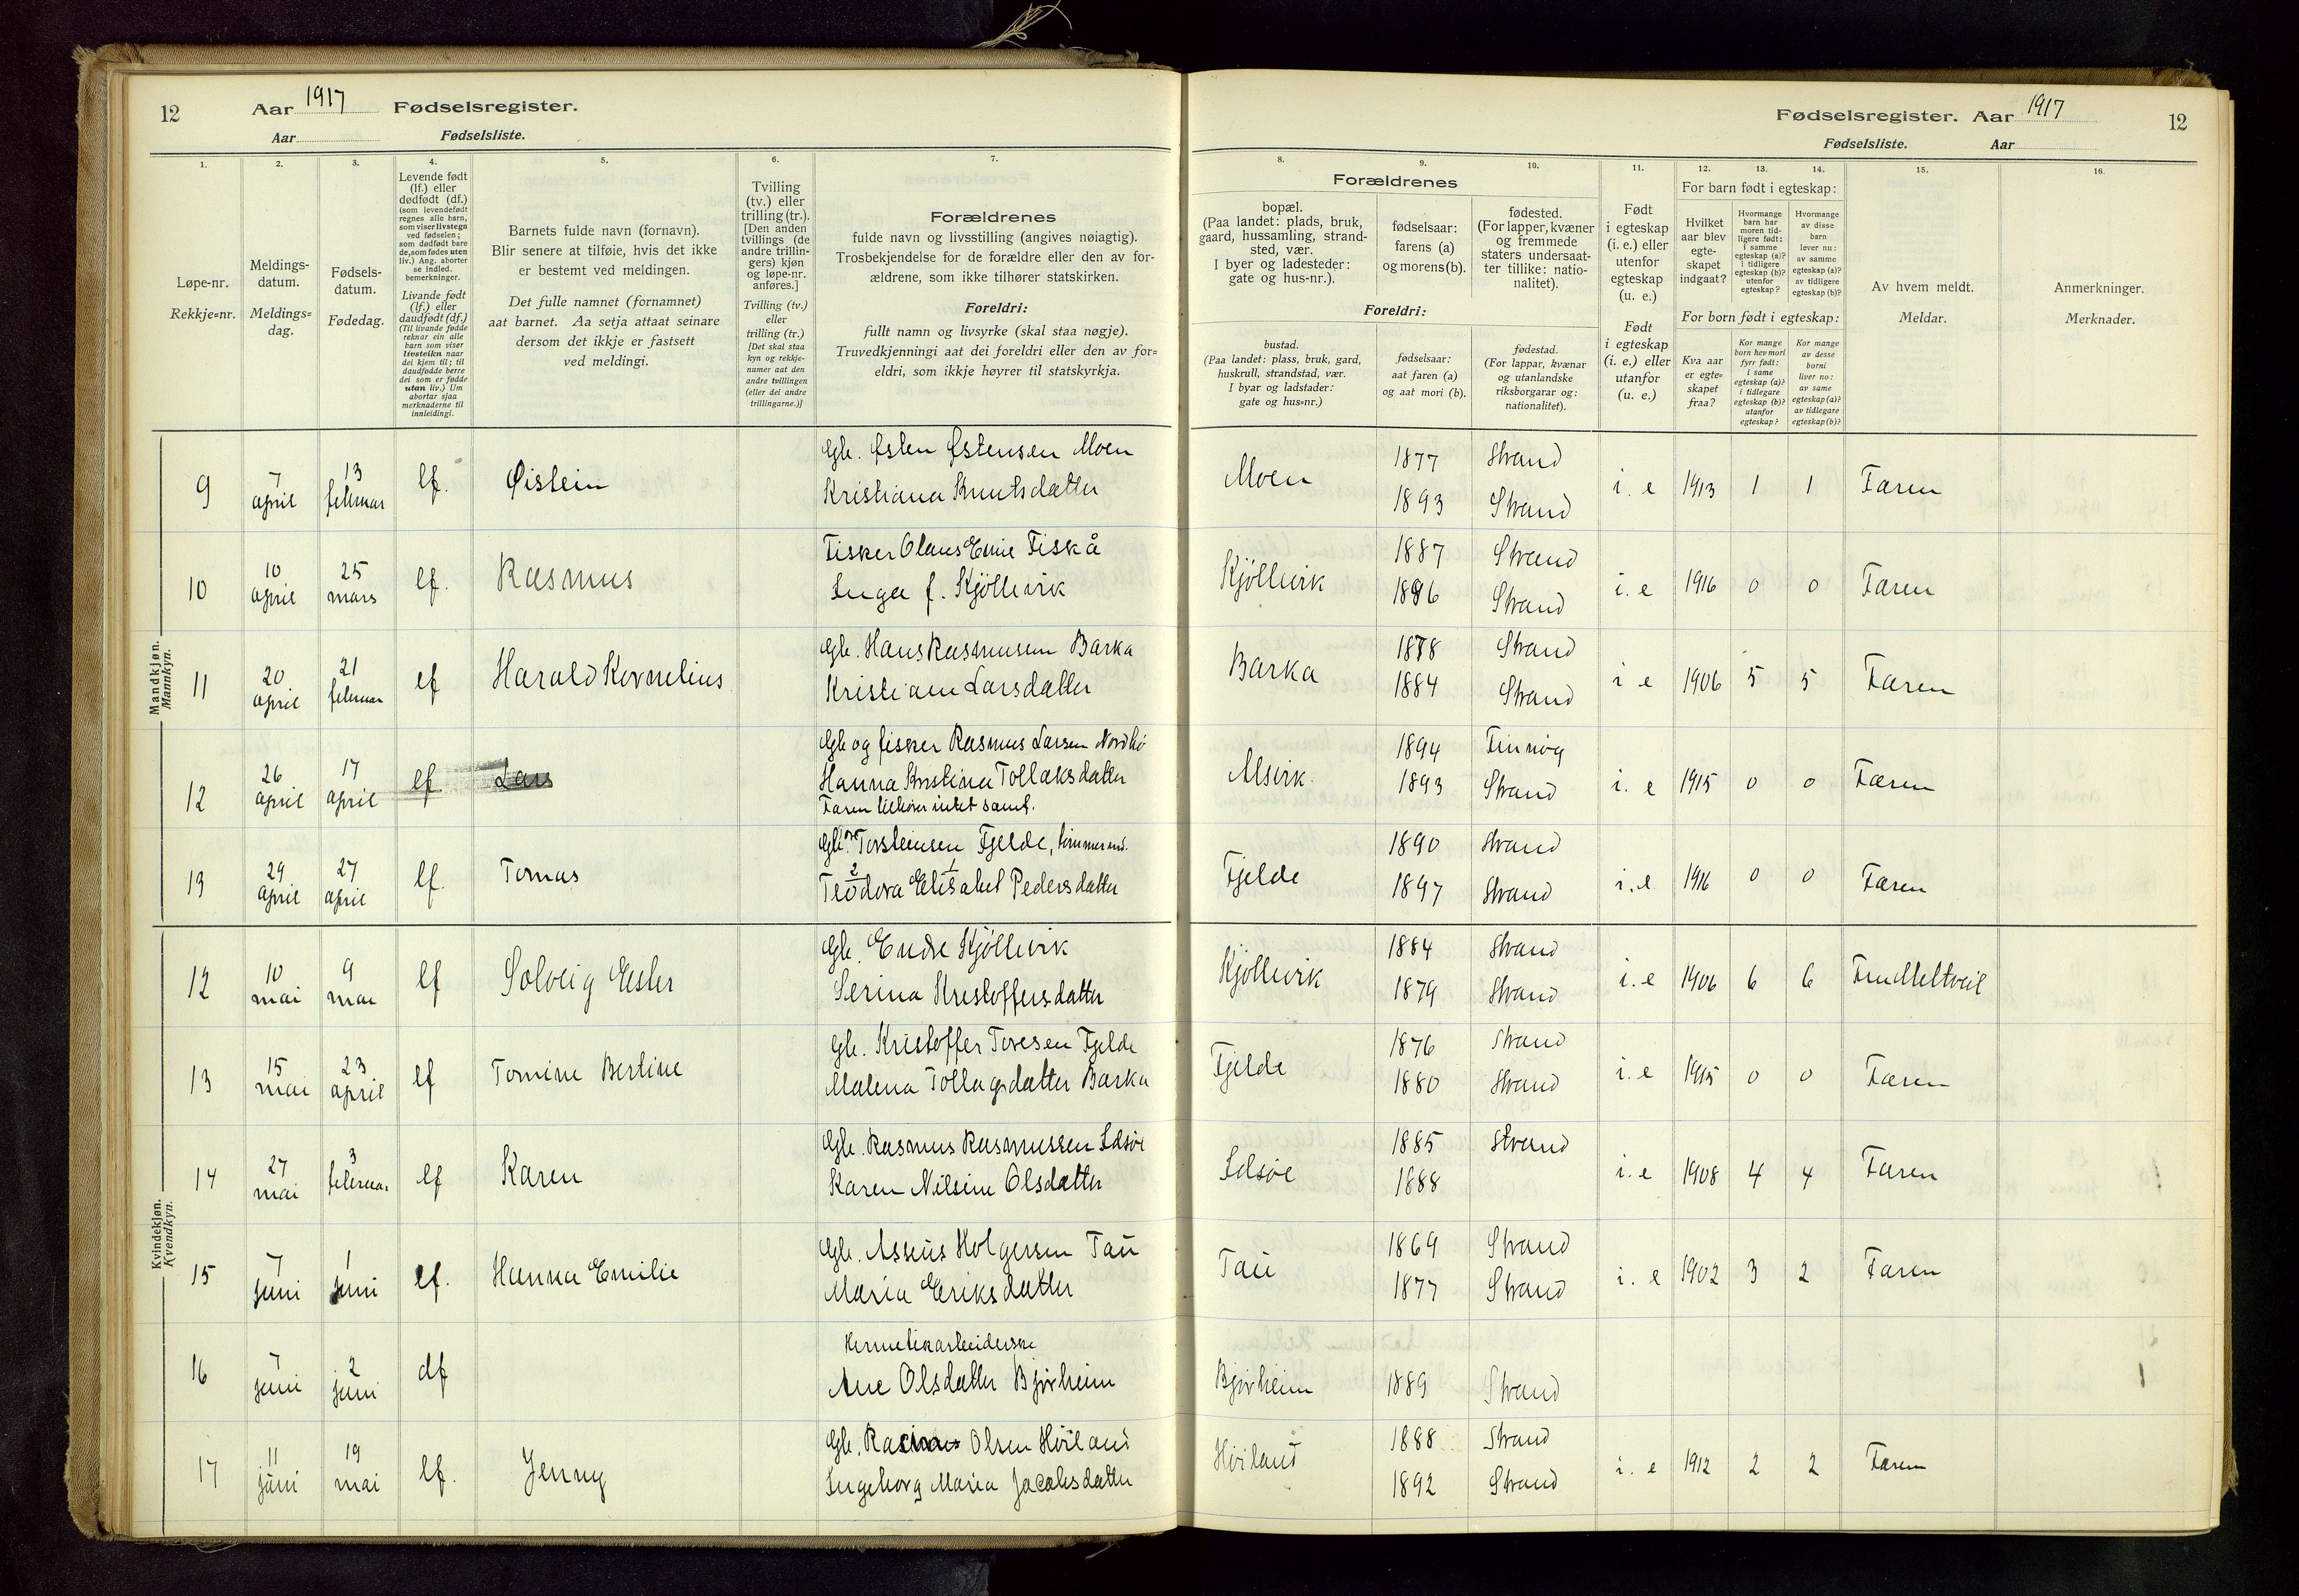 12
Aar 1917 Fødselsregister.
Aar Fødselsliste.
1.
2.
3.
4.
5.
6.
7.
Løpe-nr.
Rekkje=nr.
Meldings-
datum.
Meldings=
dag.
Fødsels-
datum.
Fødedag.
Levende født
(lf.) eller
dødfødt (df.)
(som levendefødt
regnes alle barn,
som viser livstegn
ved fødselen;
som dødfødt bare
de, som fødes uten
liv.) Ang. aborter
se indled.
bemerkninger.
Livande født
(lf.) eller
daudfødt (df.)
(Til livande fødde
reknar ein alle
born som viser
livsteikn naar
dei kjem til; til
daudfødde berre
dei som er fødde
utan liv.) Um
abortar sjaa
merknaderne til
innleidingi.
Barnets fulde navn (fornavn).
Blir senere at tilføie, hvis det ikke
er bestemt ved meldingen.
Det fulle namnet (fornamnet)
aat barnet. Aa setja attaat seinare
dersom det ikkje er fastsett
ved meldingi.
Tvilling
(tv.) eller
trilling (tr.).
[Den anden
tvillings (de
andre trillin-
gers) kjøn
og løpe-nr.
anføres.]
Tvilling (tv.)
eller
trilling (tr.)
[Det skal staa
kyn og rekkje-
numer aat den
andre tvillingen
(eller dei andre
trillingarne.)]
Forældrenes
fulde navn og livsstilling (angives nøiagtig).
Trosbekjendelse for de forældre eller den av for-
ældrene, som ikke tilhører statskirken.
Foreldri:
fullt namn og livsyrke (skal staa nøgje).
Truvedkjenningi aat dei foreldri eller den av for=
eldri, som ikkje høyrer til statskyrkja.
Mandkjøn.
Mannkyn.
9 7 april 13 februar lf. Øistein Gb. Østen Østensen Moen
Kristiana Knutsdatter
10 10 april 25 mars lf. Rasmus Fisker Olaus Emil Fiskå
Inga f. Kjöllevik
11 20 april 21 februar lf Harald Kornelius Gb. Hans Rasmusen Barka
Kristiane Larsdatter
12 26 april 17 april lf. Lars Gb og fisker Rasmus Larsen Nordbö
Hanna Kristina Tollaksdatter
Faren tilhører intet samf.
13 29 april 27 april lf. Tomas Gb. Torsteinsen Fjelde, tømmerm.
2 1
Teodora Elisabet Pedersdatter
Kvindekjøn.
Kvendkyn.
12 10 mai 9 mai lf Solveig Ester Gb. Endre Kjöllevik
Serina Kristoffersdatter
13 15 mai 23 april lf Tomine Bertine Gb. Kristoffer Toresen Fjelde
Malena Tollagsdatter Barka
14 27 mai 3 februar lf Karen Gb. Rasmus Rasmussen Idsøe
Karen Nilsine Olsdatter
15 7 juni 1 juni lf. Hanna Emilie Gb. Asseus Holgersen Tau
Maria Eriksdatter
16 7 juni 2 juni df Hermetikarbeiderske
Ane Olsdatter Bjørheim
17 11 juni 19 mai lf. Jenny Gb. Rasmus Olsen Høiland
Ingeborg Maria Jacobsdatter
Fødselsregister. Aar 1917
12
Fødselsliste. Aar
8.
9.
10.
11.
12.
13.
14.
15.
16.
Forældrenes
bopæl.
(Paa landet: plads, bruk,
gaard, hussamling, strand-
sted, vær.
I byer og ladesteder:
gate og hus-nr.).
fødselsaar:
farens (a)
og morens (b).
fødested.
(For lapper, kvæner
og fremmede
staters undersaat-
ter tillike: natio-
nalitet).
Foreldri:
bustad.
(Paa landet: plass, bruk, gard,
huskrull, strandstad, vær.
I byar og ladstader:
gate og hus=nr.)
fødselsaar:
aat faren (a)
og aat mori (b).
fødestad.
(For lappar, kvænar
og utanlandske
riksborgarar og:
nationalitet).
Født
i egteskap
(i. e.) eller
utenfor
egteskap
(u. e.)
Født
i egteskap
(i. e.) eller
utanfor
(u. e.)
For barn født i egteskap:
Hvilket
aar blev
egte-
skapet
indgaat?
Hvormange
barn har
moren tid-
ligere født:
i samme
egteskap (a)?
i tidligere
egteskap (b)?
utenfor
egteskap?
Hvormange
av disse
barn
lever nu:
av samme
egteskap (a)?
av tidligere
egteskap (b)?
For born født i egteskap:
Kva aar
er egte=
skapet
fraa?
Kor mange
born hev mori
fyrr født:
i same
egteskap (a)?
i tidlegare
egteskap (b)?
utanfor
egteskap?
Kor mange
av desse
borni
liver no:
av same
egteskap (a)?
av tidlegare
egteskap (b)?
Av hvem meldt.
Meldar.
Anmerkninger.
Merknader.
Moen 1877 Strand
1893 Strand i. e 1913 1 1 Faren
Kjöllevik 1887 Strand
1896 Strand i. e 1916 0 0 Faren
Barka 1878 Strand
1884 Strand i e 1906 5 5 Faren
Alsvik 1894 Finnøy
1893 Strand i. e 1915 0 0 Faren
Fjelde 1890 Strand
1897 Strand i. e 1916 0 0 Faren
Kjöllevik 1884 Strand
1879 Strand i. e 1906 6 6 Fru Meltveit
Fjelde 1876 Strand
1880 Strand i. e 1915 0 0 Faren
Idsøe 1885 Strand
1888 i. e 1908 4 4 Faren
Tau 1869 Strand
1877 Strand i. e 1902 3 2 Faren
Bjørheim 1889 Strand
1
Høiland 1888 Strand
1892 Strand i. e 1912 2 2 Faren